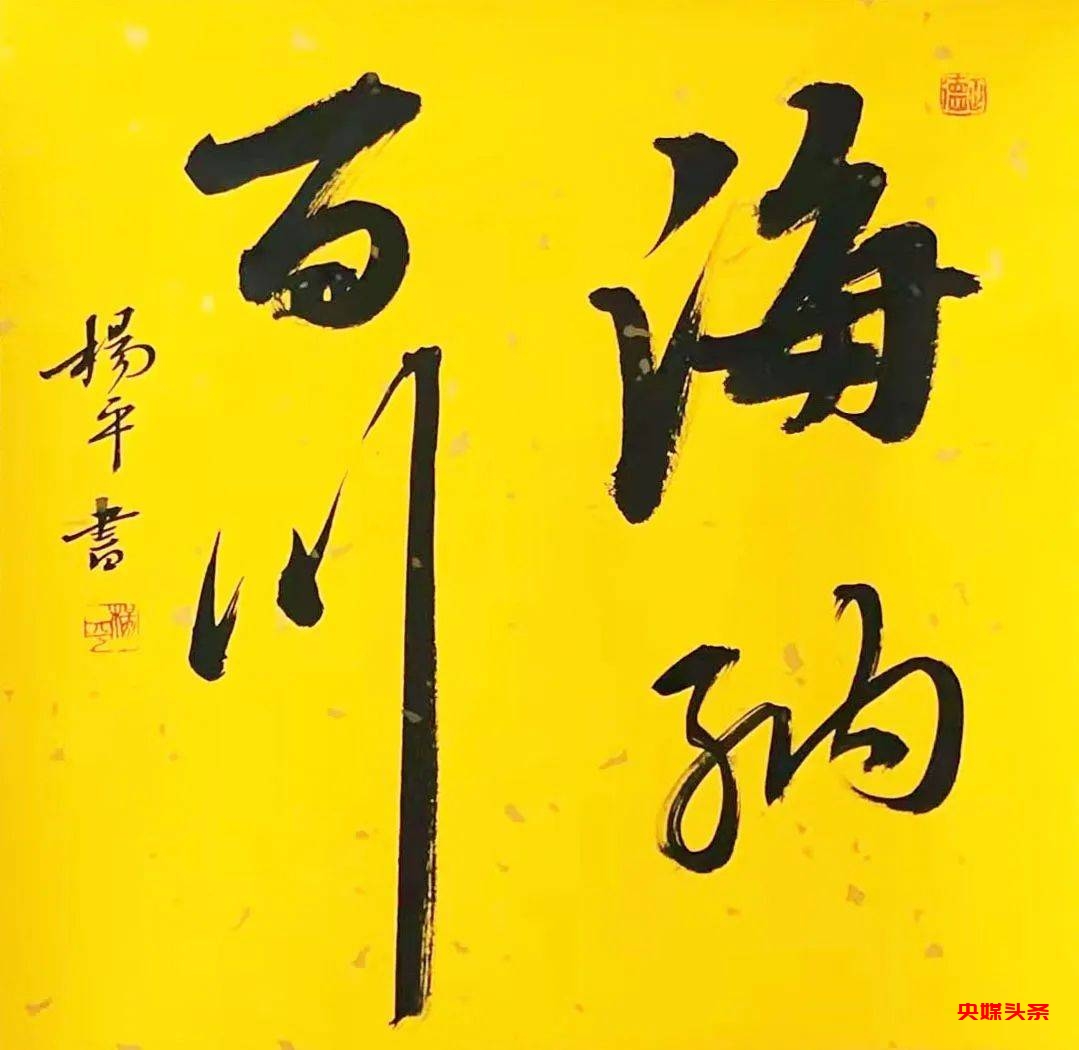 海纳
百川
楊平書
央媒头条